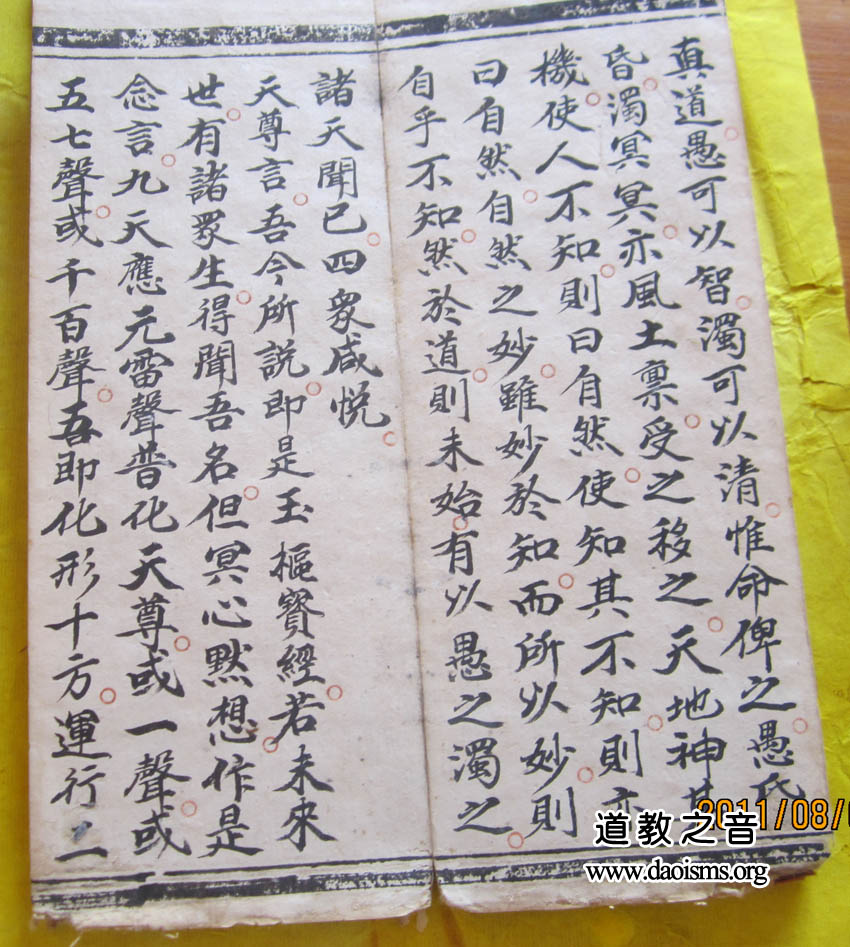 真道愚可以智濁可以清惟命俾之愚昏
昏濁冥冥亦風土稟受之移之天地神其
機使人不知則曰自然使知其不知則亦
曰自然自然之妙雖妙於知而所以妙則
自乎不知然於道則未始有以愚之濁之
諸天聞已四衆咸悅
天尊言吾今所說即是玉樞寶經若未來
世有諸衆生得聞吾名但冥心默想作是
念言九天應元雷聲普化天尊或一聲或
五七聲或千百聲吾即化形十方運行
2011/08/
道教之音
www.daoisms.org